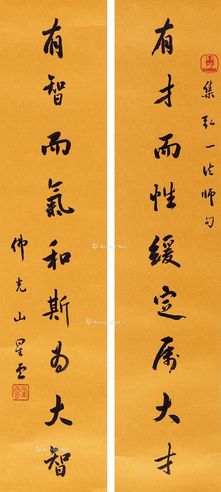 集弘一法师句
有才而性缓定属大才
有智而氣和斯为大智
佛光山星云